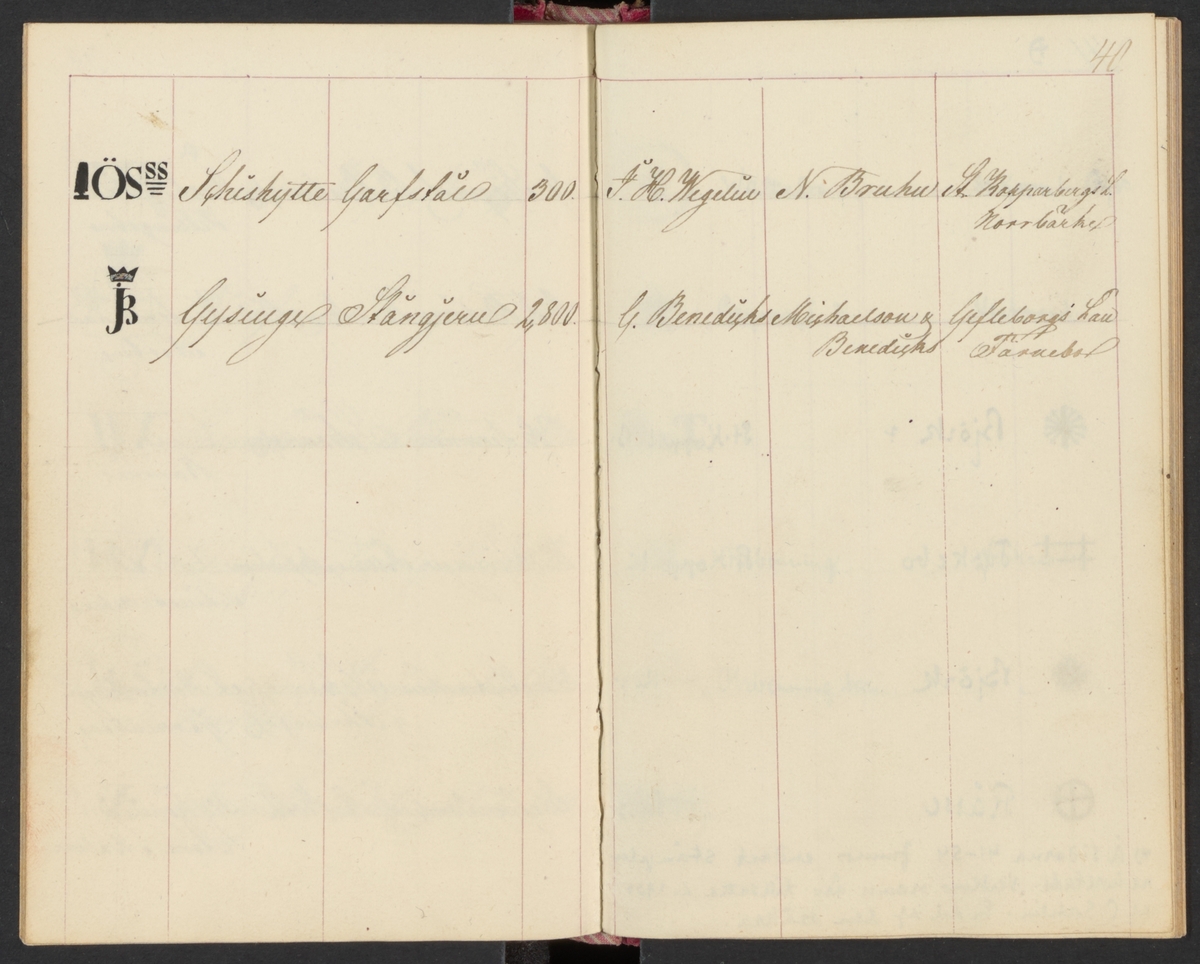 40
1ÖS SS Schishytte Garfstål 300. F. H. Wegelin N. Bruhn St. Kopparbergs L.
Norrbärke
JB Gysinge Stångjern 2,800. G. Benedicks Michaelson &
Benedicks
Gefleborgs Län
Färnebo